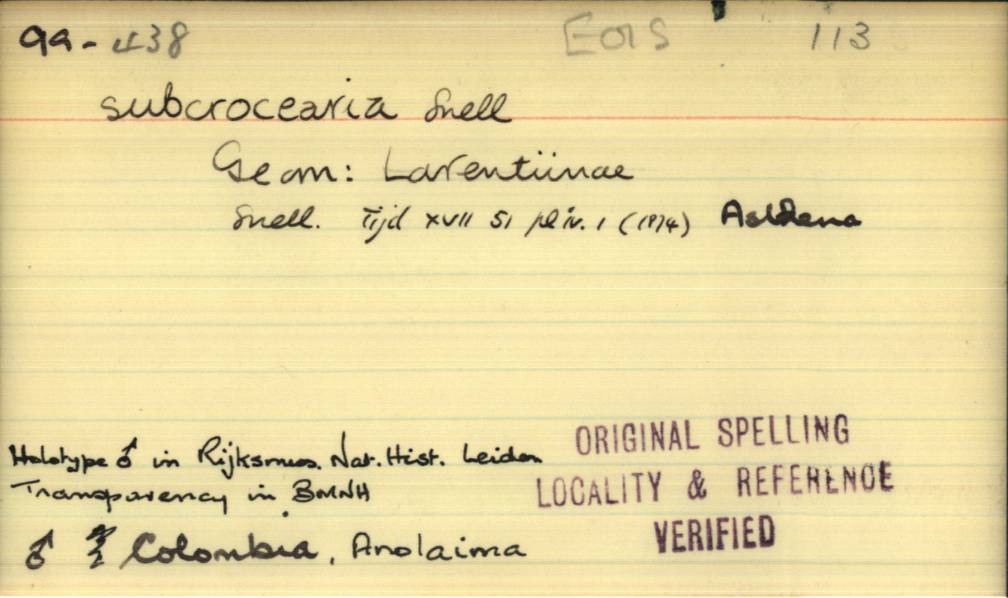 99-438 Eois 113
subcrocearia Snell
Geom: Larentiinae
Snell. Tijd XVII 51 pl iv. 1 (1874)
Holotype ♂ in Rijksmus. Nat. Hist. Leiden
Transparency in BMNH
♂ Colombia, Anolaima
ORIGINAL SPELLING
LOCALITY & REFERENCE
VERIFIED